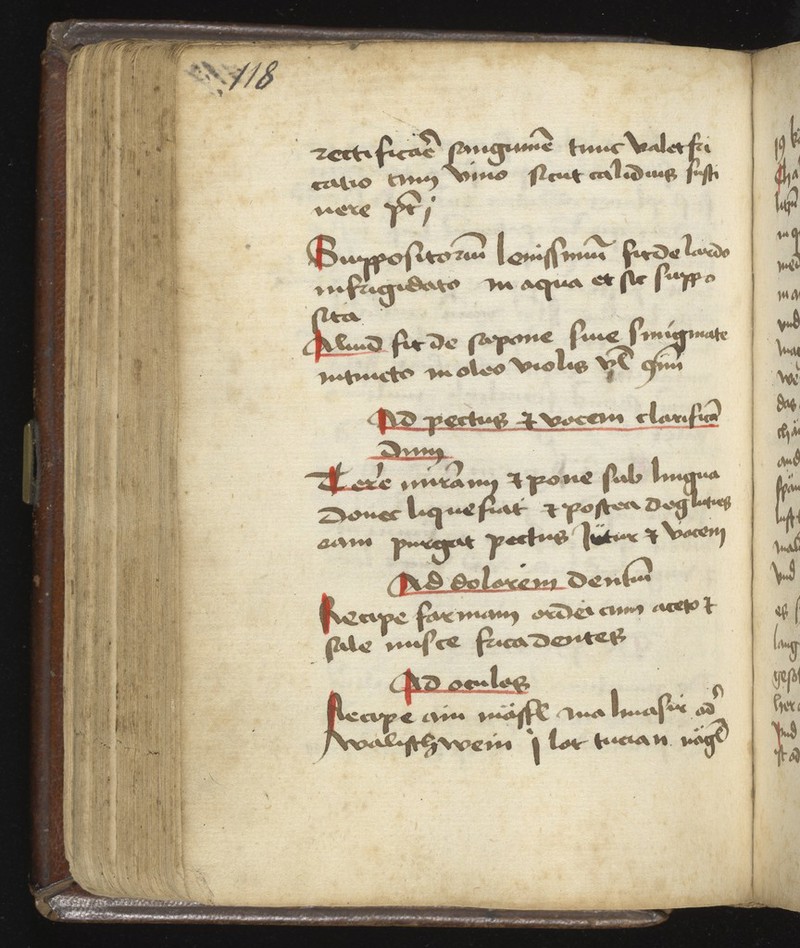 118
rectificare sanguinem tunc valet fri
catio cum vino sicut calidius susti
nere pt
Suppositoriũ lenissimũ fit de lardo
infrigidato in aqua et sic suppo
sita
Aliud fit de sapone siue smigmate
intincto in oleo violis vl
Ad pectus et vocem clarificã
dum
Tere mirram et pone sub lingua
donec liquefiat et postea deglucies
eam purgat pectus et vocem
Ad dolorem dentiũ
Recipe farinam ordei cum aceto et
sale misce frica dentes
Ad oculos
Recipe ain mässl malmasir od
walisch wein j lot tucian nägl